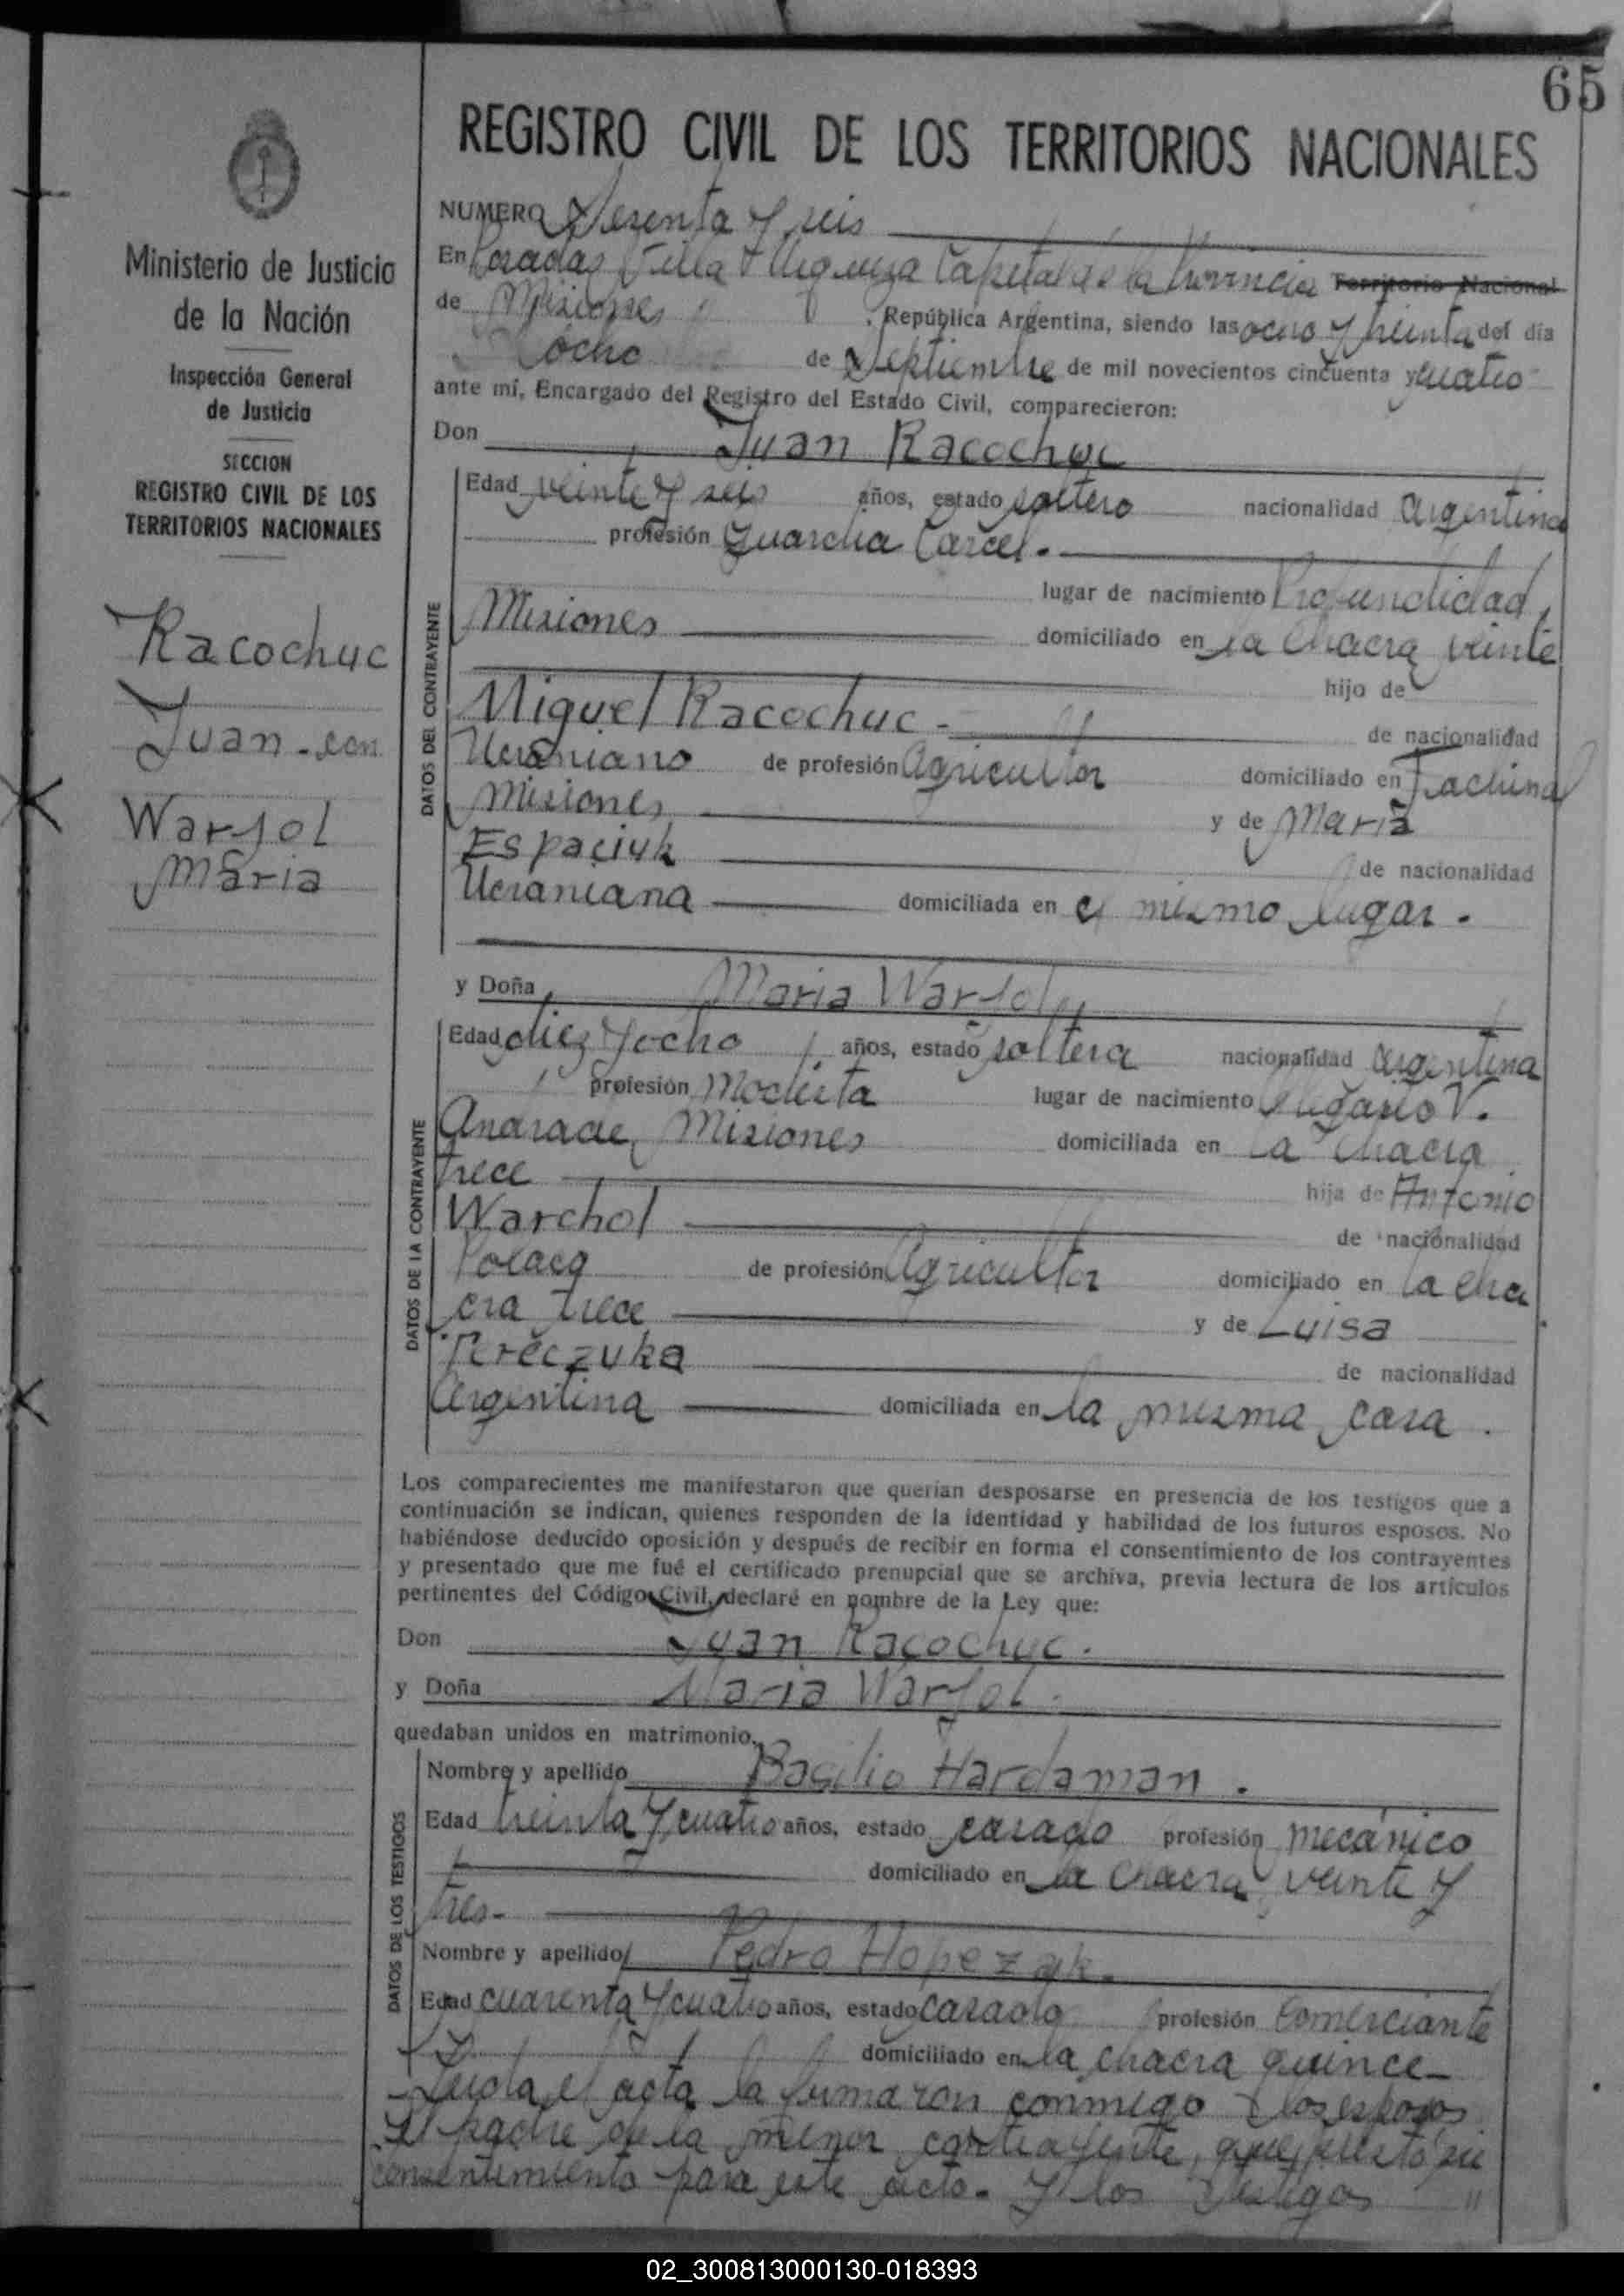 65
REGISTRO CIVIL DE LOS TERRITORIOS NACIONALES
Ministerio de Justicia
de la Nación
Inspección General
de Justicia
SECCION
REGISTRO CIVIL DE LOS
TERRITORIOS NACIONALES
Racochuc
Juan - con
Warjol
Maria
NUMERO Sesenta y seis
En Posadas, Villa Urquiza Capital de la Provincia Territorio Nacional
de Misiones, República Argentina, siendo las ocho y treinta del día
ocho de Septiembre de mil novecientos cincuenta y cuatro
ante mí, Encargado del Registro del Estado Civil, comparecieron:
Don Juan Racochuc
DATOS DEL CONTRAYENTE
Edad veinte y seis años, estado soltero nacionalidad argentina
profesión Guardia Carcel.
lugar de nacimiento Profundidad,
Misiones domiciliado en la Chacra veinte
hijo de
Miguel Racochuc - de nacionalidad
Ucraniano de profesión Agricultor domiciliado en Fachinal
Misiones y de Maria
Espaciuk de nacionalidad
Ucraniana domiciliada en el mismo lugar.
y Doña Maria Warjol
DATOS DE LA CONTRAYENTE
Edad diez y ocho años, estado soltera nacionalidad argentina
profesión Modista lugar de nacimiento Olegario V.
Andrade, Misiones domiciliada en La Chacra
trece hija de Antonio
Warchol de nacionalidad
Polaca de profesión Agricultor domiciliado en la cha
cra trece y de Luisa
Pereczuka de nacionalidad
Argentina domiciliada en la misma casa.
Los comparecientes me manifestaron que querían desposarse en presencia de los testigos que a
continuación se indican, quienes responden de la identidad y habilidad de los futuros esposos. No
habiéndose deducido oposición y después de recibir en forma el consentimiento de los contrayentes
y presentado que me fué el certificado prenupcial que se archiva, previa lectura de los artículos
pertinentes del Código Civil, declaré en nombre de la Ley que:
Don Juan Racochuc.
y Doña Maria Warjol.
quedaban unidos en matrimonio.
DATOS DE LOS TESTIGOS
Nombre y apellido Basilio Hardaman.
Edad treinta y cuatro años, estado casado profesión mecánico
domiciliado en la chacra veinte y
tres.-
Nombre y apellido Pedro
Edad cuarenta y cuatro años, estado casado profesión Comerciante
domiciliado en la chacra quince-
Leida el acta la firmaron conmigo los esposos
el padre de la menor contrayente, que presto su
consentimiento para este acto. y los testigos "
02_300813000130-018393